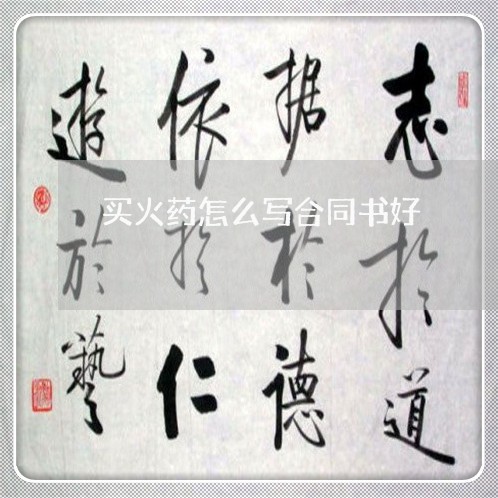 志於道
据於德
依於仁
遊於藝
买火药怎么写合同书好